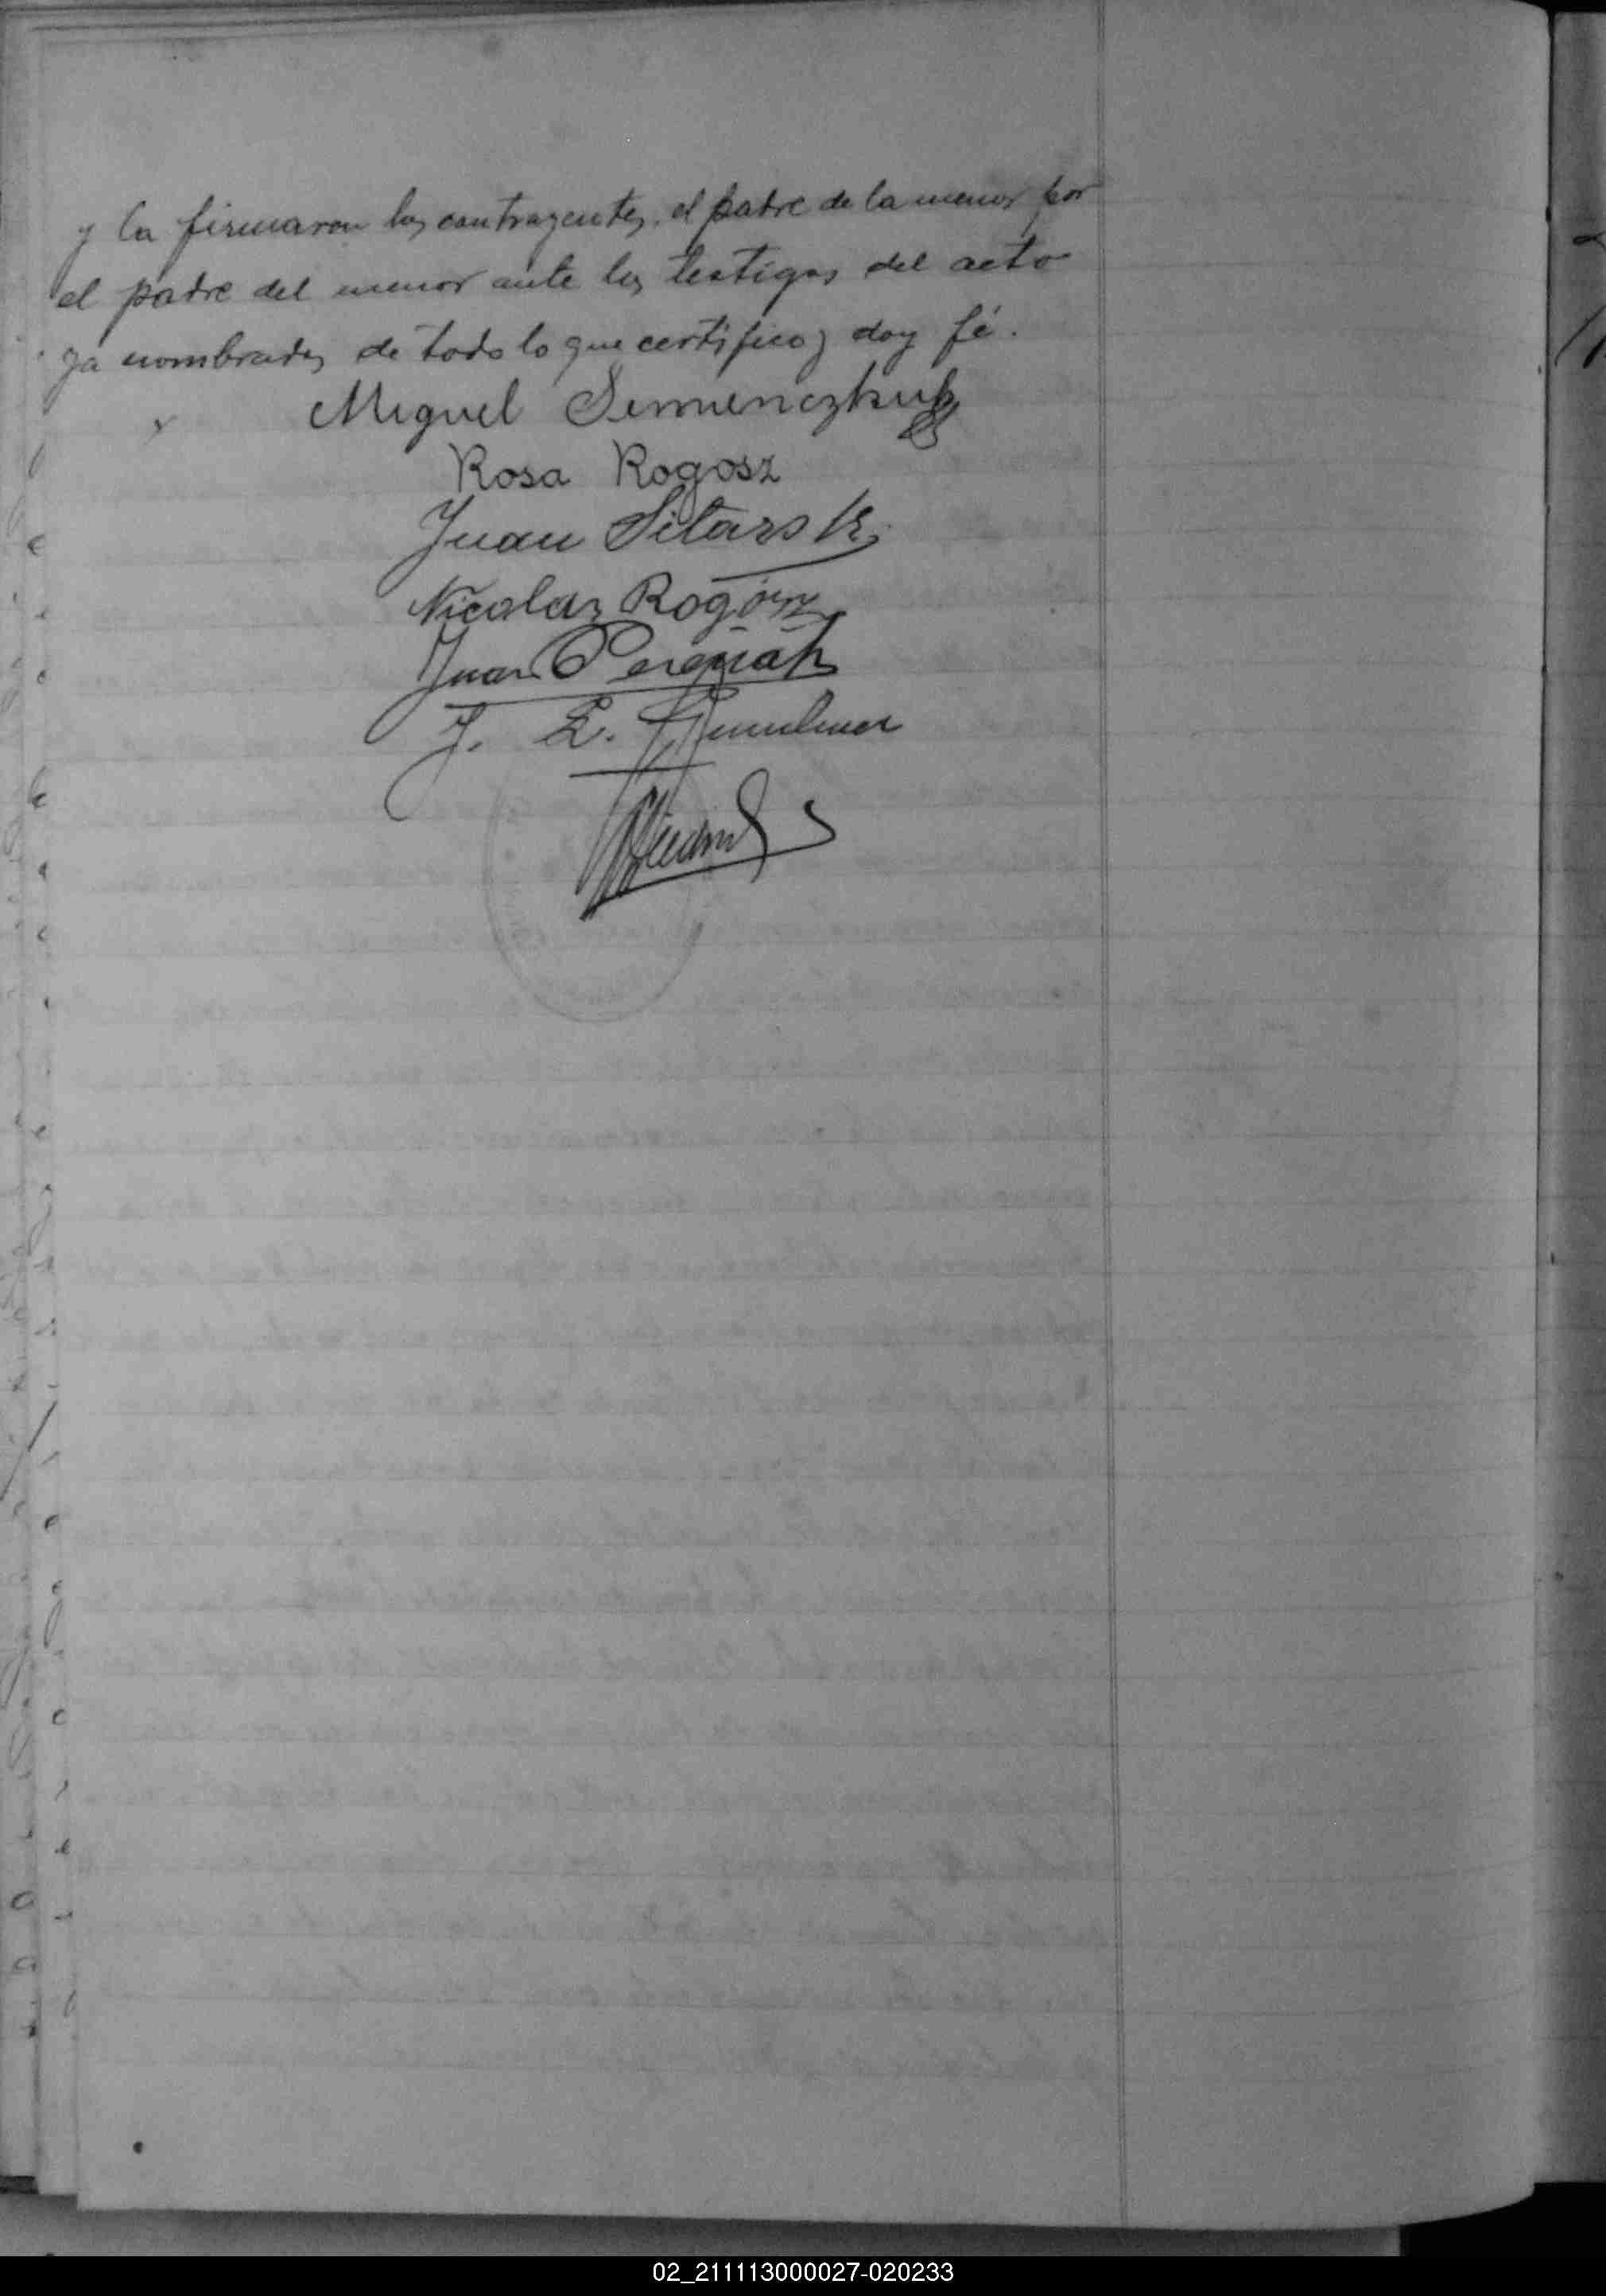 y la firmaron los contrayentes, el padre de la menor por
el padre del menor ante los testigos del acto
ya nombrados de todo lo que certifico y doy fé.
Miguel Semenczhuk
Rosa Rogosz
Juan Sitarski
Nicolas Rogosz
Juan
J. E.
02_211113000027-020233